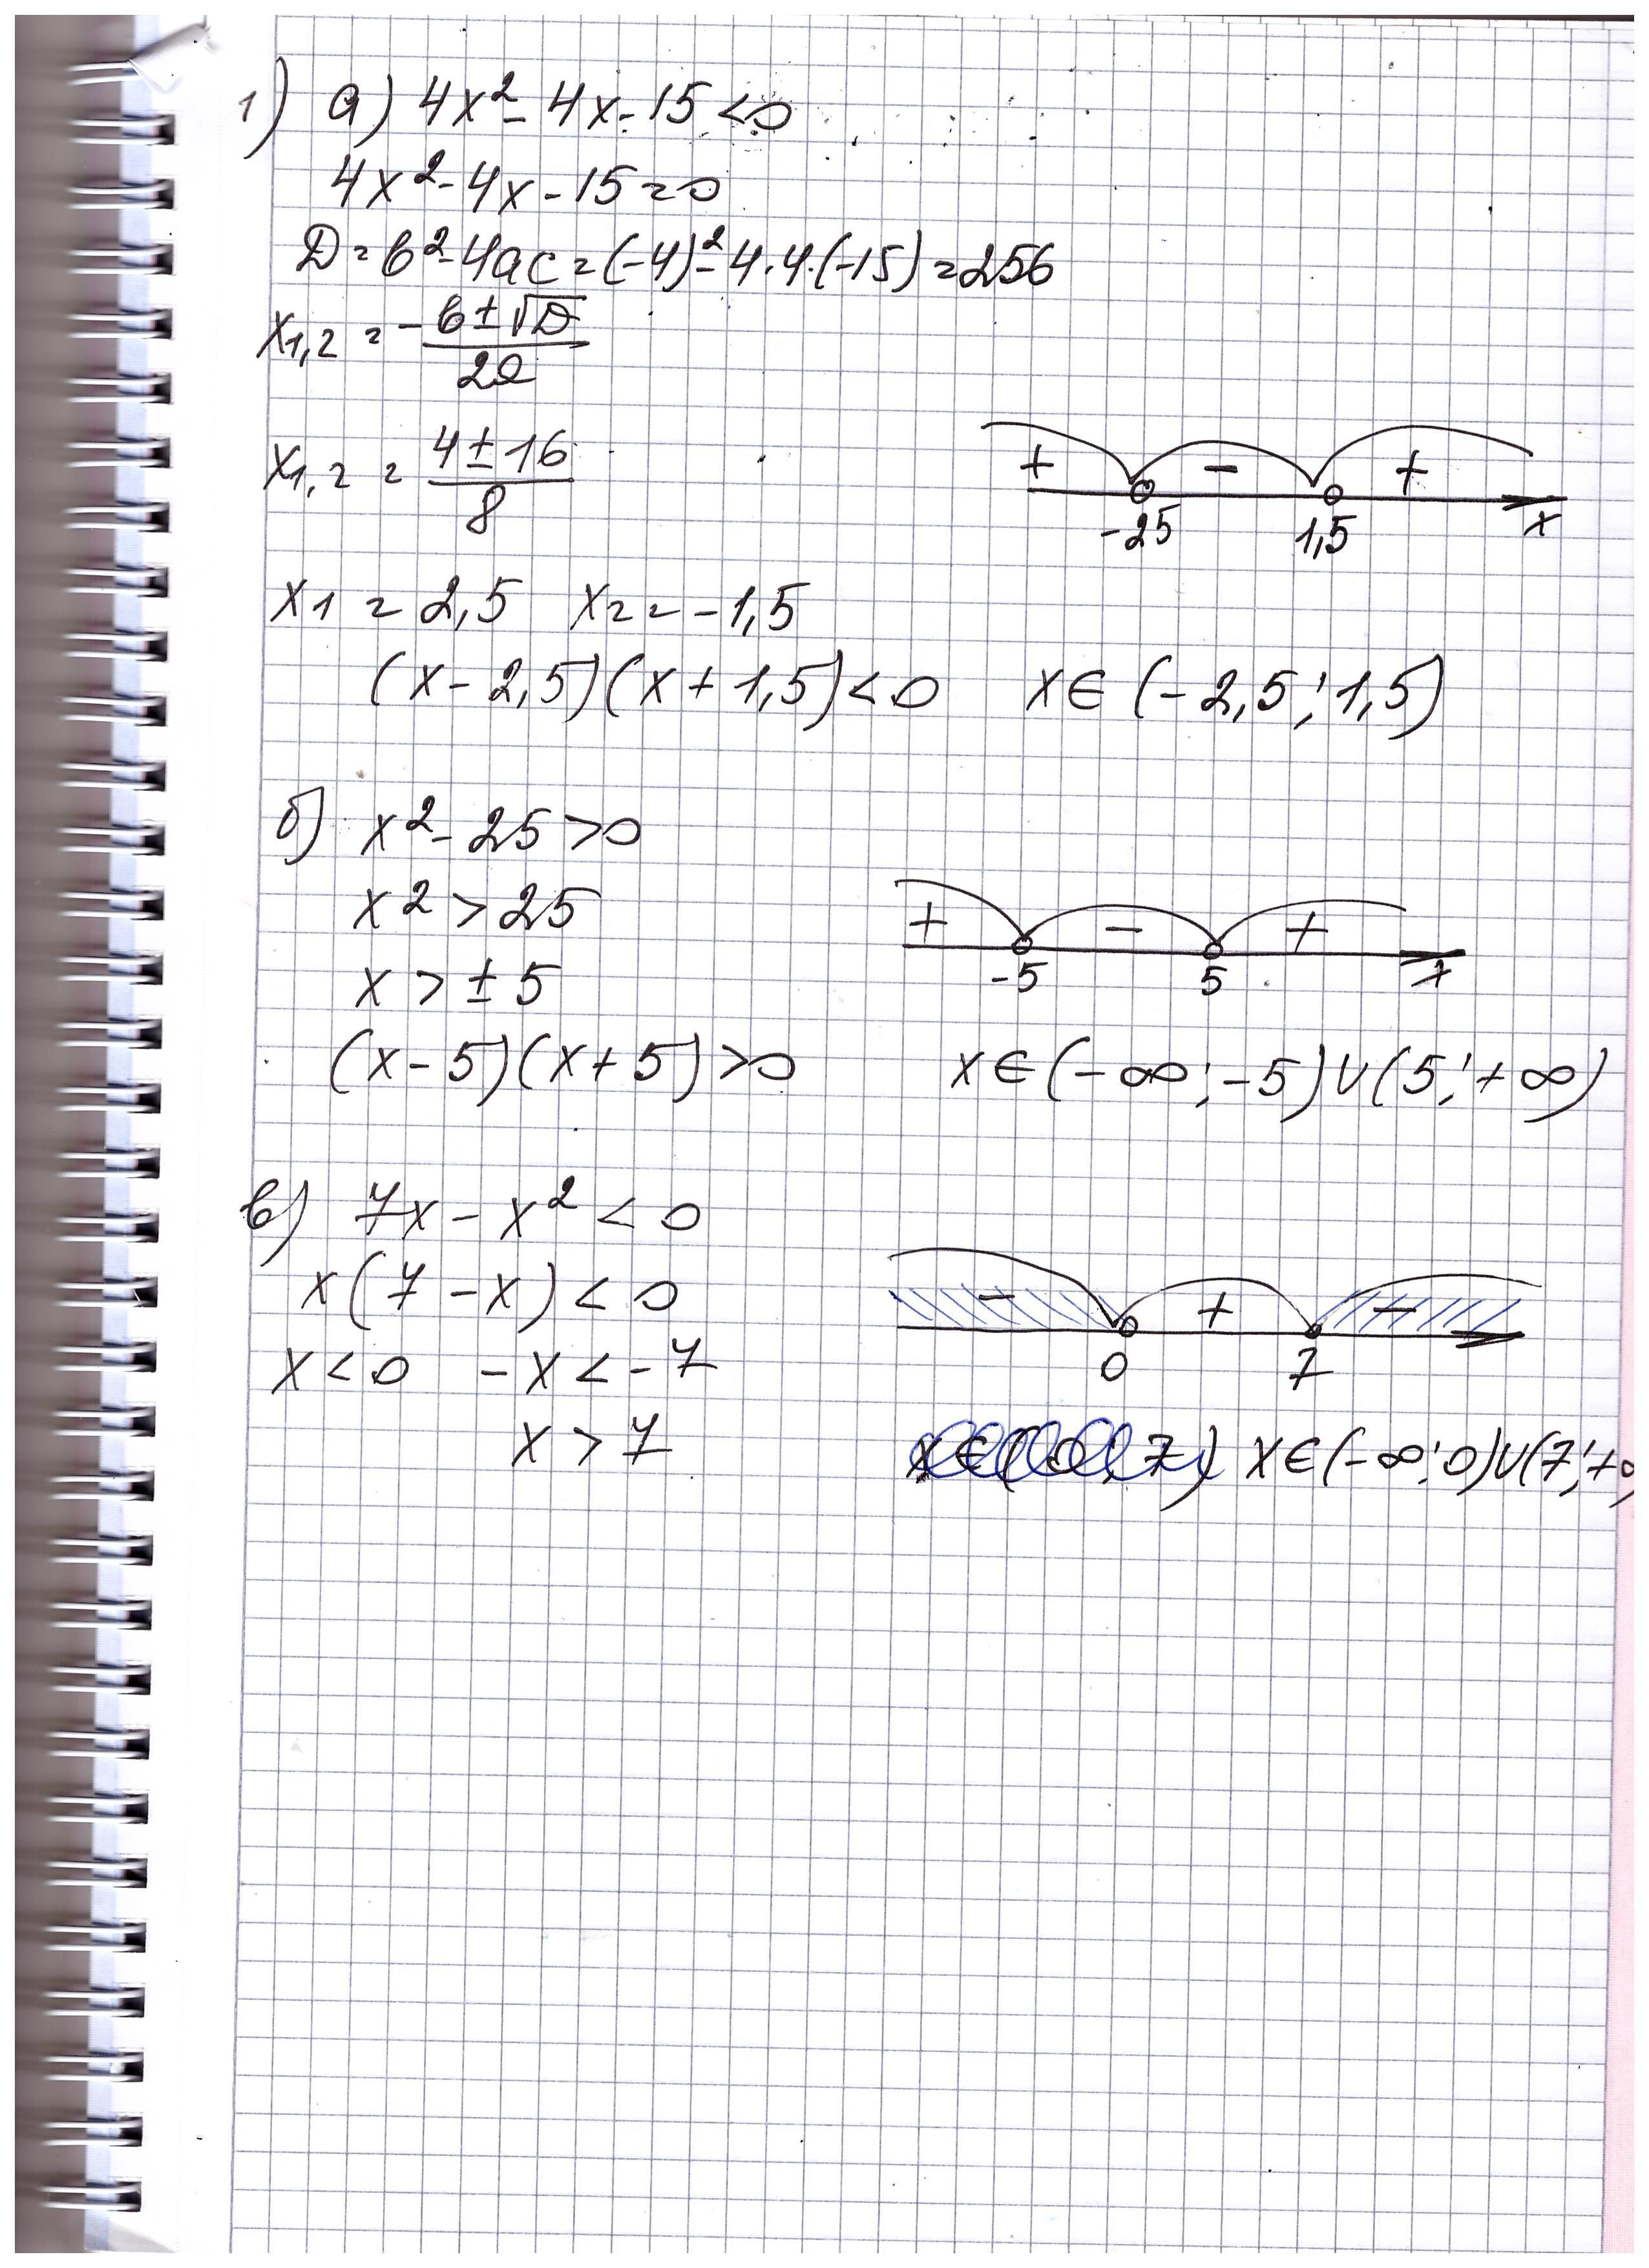 1) a) 4x² - 4x - 15 < 0
4x² - 4x - 15 = 0
D = b² - 4ac = (-4)² - 4·4·(-15) = 256
x1,2 = -b ± √D / 2a
x1,2 = 4 ± 16 / 8
+ - +
-25 1,5 x
x1 = 2,5 x2 = -1,5
(x - 2,5)(x + 1,5) < 0 x ∈ (-2,5; 1,5)
б) x² - 25 > 0
x² > 25
+ - +
x > ± 5
-5 5 x
(x - 5)(x + 5) > 0 x ∈ (-∞; -5) ∪ (5; +∞)
в) 7x - x² < 0
x(7 - x) < 0
- + -
x < 0 -x < -7
0 7
x > 7
x ∈ (0; 7) x ∈ (-∞; 0) ∪ (7; +∞